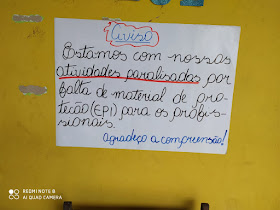 Aviso
Estamos com nossas
atividades paralisadas por
falta de material de pro-
teção (EPI) para os profis-
sionais.
agradeço a compreensão!
REDMI NOTE 8
AI QUAD CAMERA